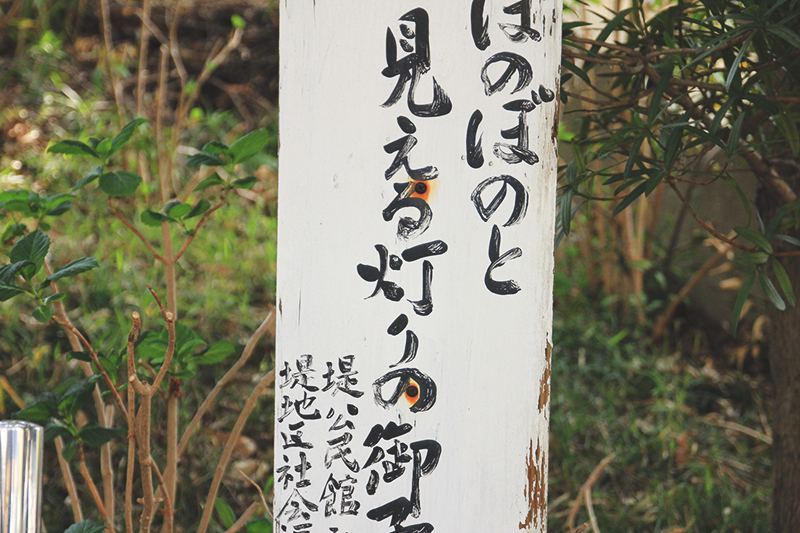 ほのぼのと
見える灯りの御
堤公民館
堤地区社会